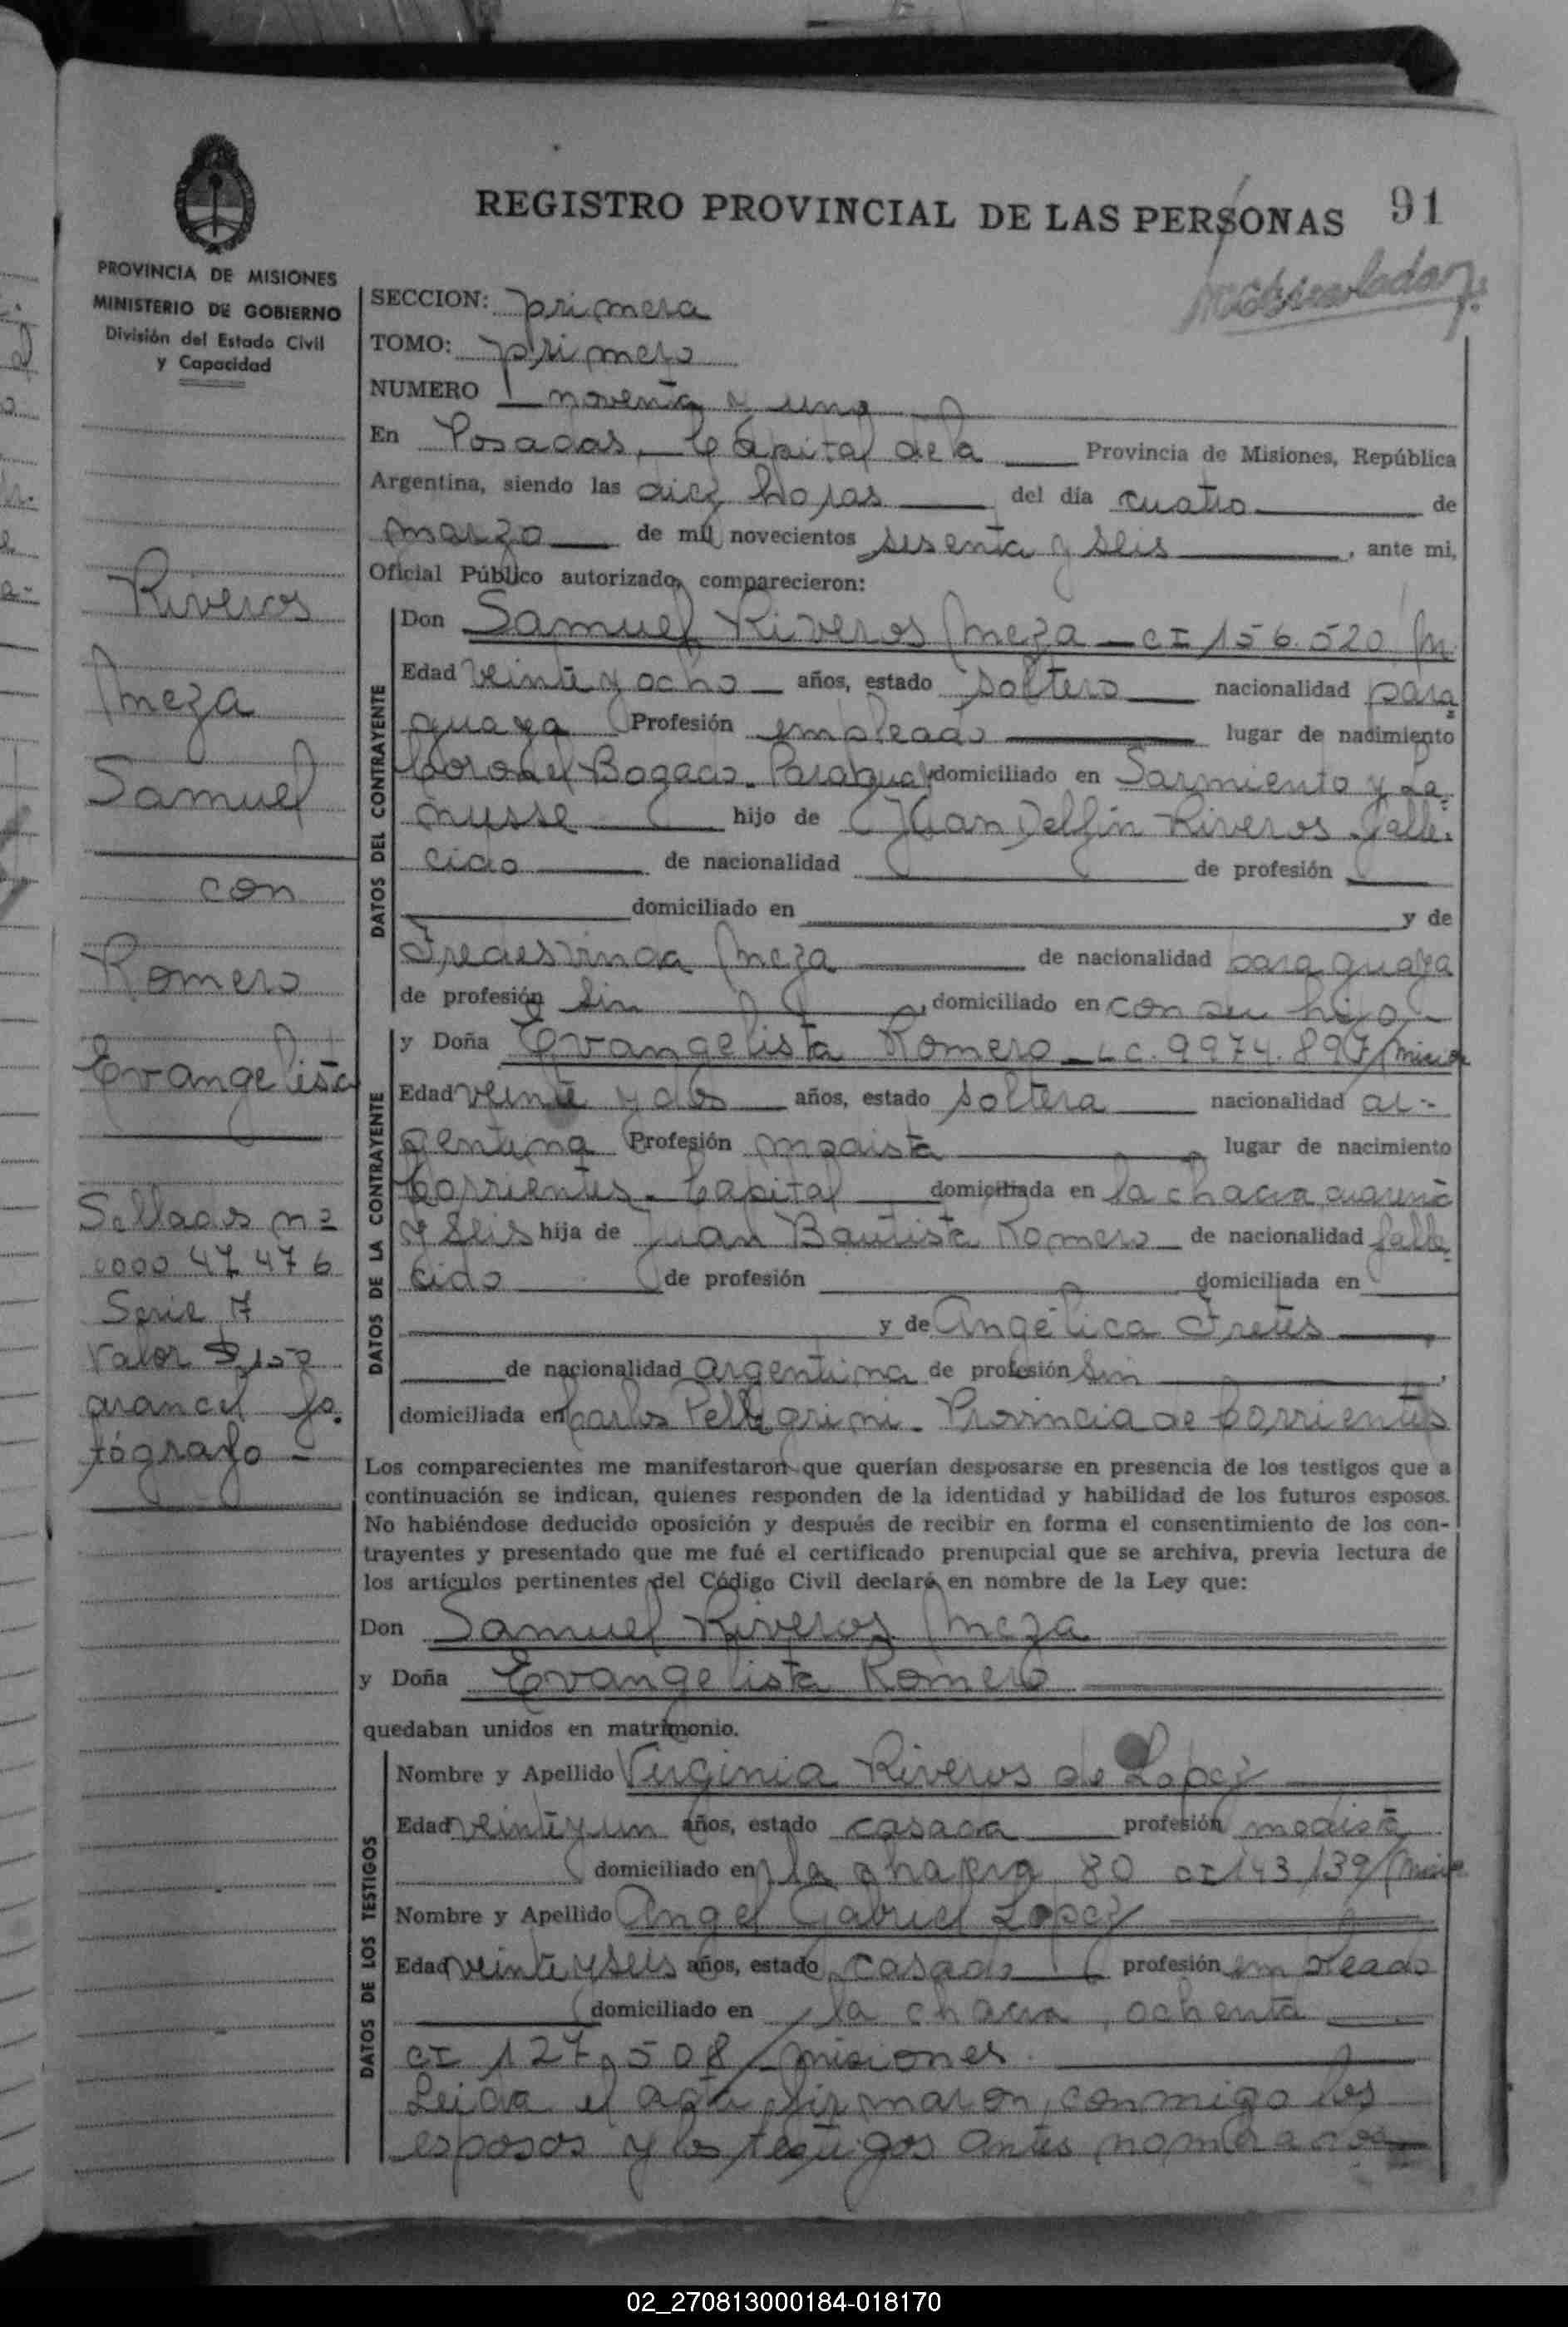 REGISTRO PROVINCIAL DE LAS PERSONAS 91
PROVINCIA DE MISIONES
MINISTERIO DE GOBIERNO
División del Estado Civil
y Capacidad
Riveros
Meza
Samuel
con
Romero
Evangelista
Sellados nº
0000 47 47 6
Serie
Valor $ 150
arancel fo
tógrafo -
SECCION: primera
TOMO: primero
NUMERO noventa y uno
En Posadas, Capital de la Provincia de Misiones, República
Argentina, siendo las diez horas del día cuatro de
marzo de mil novecientos sesenta y seis, ante mi,
Oficial Público autorizado, comparecieron:
DATOS DEL CONTRAYENTE
Don Samuel Riveros Meza - CI 156.520 M
Edad veinte y ocho años, estado soltero nacionalidad para
guaya Profesión empleado lugar de nacimiento
Coronel Bogado. Paraguay domiciliado en Sarmiento y La
nusse hijo de Juan Delfin Riveros. falle.
cido de nacionalidad de profesión
domiciliado en y de
Fredesvinda Meza de nacionalidad paraguaya
de profesión sin, domiciliado en con su hijo
DATOS DE LA CONTRAYENTE
y Doña Evangelista Romero - L C. 9974.897/
Edad veinte y dos años, estado soltera nacionalidad ar-
gentina Profesión modista lugar de nacimiento
Corrientes. Capital domiciliada en la chacra cuarenta
y seis hija de Juan Bautista Romero de nacionalidad falle
cido de profesión domiciliada en
y de Angélica Fretes,
de nacionalidad argentina de profesión sin,
domiciliada en Carlos Pellegrini. Provincia de Corrientes
Los comparecientes me manifestaron que querían desposarse en presencia de los testigos que a
continuación se indican, quienes responden de la identidad y habilidad de los futuros esposos.
No habiéndose deducido oposición y después de recibir en forma el consentimiento de los con-
trayentes y presentado que me fué el certificado prenupcial que se archiva, previa lectura de
los artículos pertinentes del Código Civil declaré en nombre de la Ley que:
Don Samuel Riveros Meza
y Doña Evangelista Romero
quedaban unidos en matrimonio.
DATOS DE LOS TESTIGOS
Nombre y Apellido Virginia Riveros de Lopez
Edad veinte y un años, estado casada profesión modista
domiciliado en la chacra 80 CI 143/139/
Nombre y Apellido Angel Gabriel Lopez
Edad veinte y seis años, estado casado profesión empleado
domiciliado en la chacra ochenta
CI 127.508/misiones.
Leida el acta firmaron conmigo los
esposos y los testigos antes nombrados
02_270813000184-018170